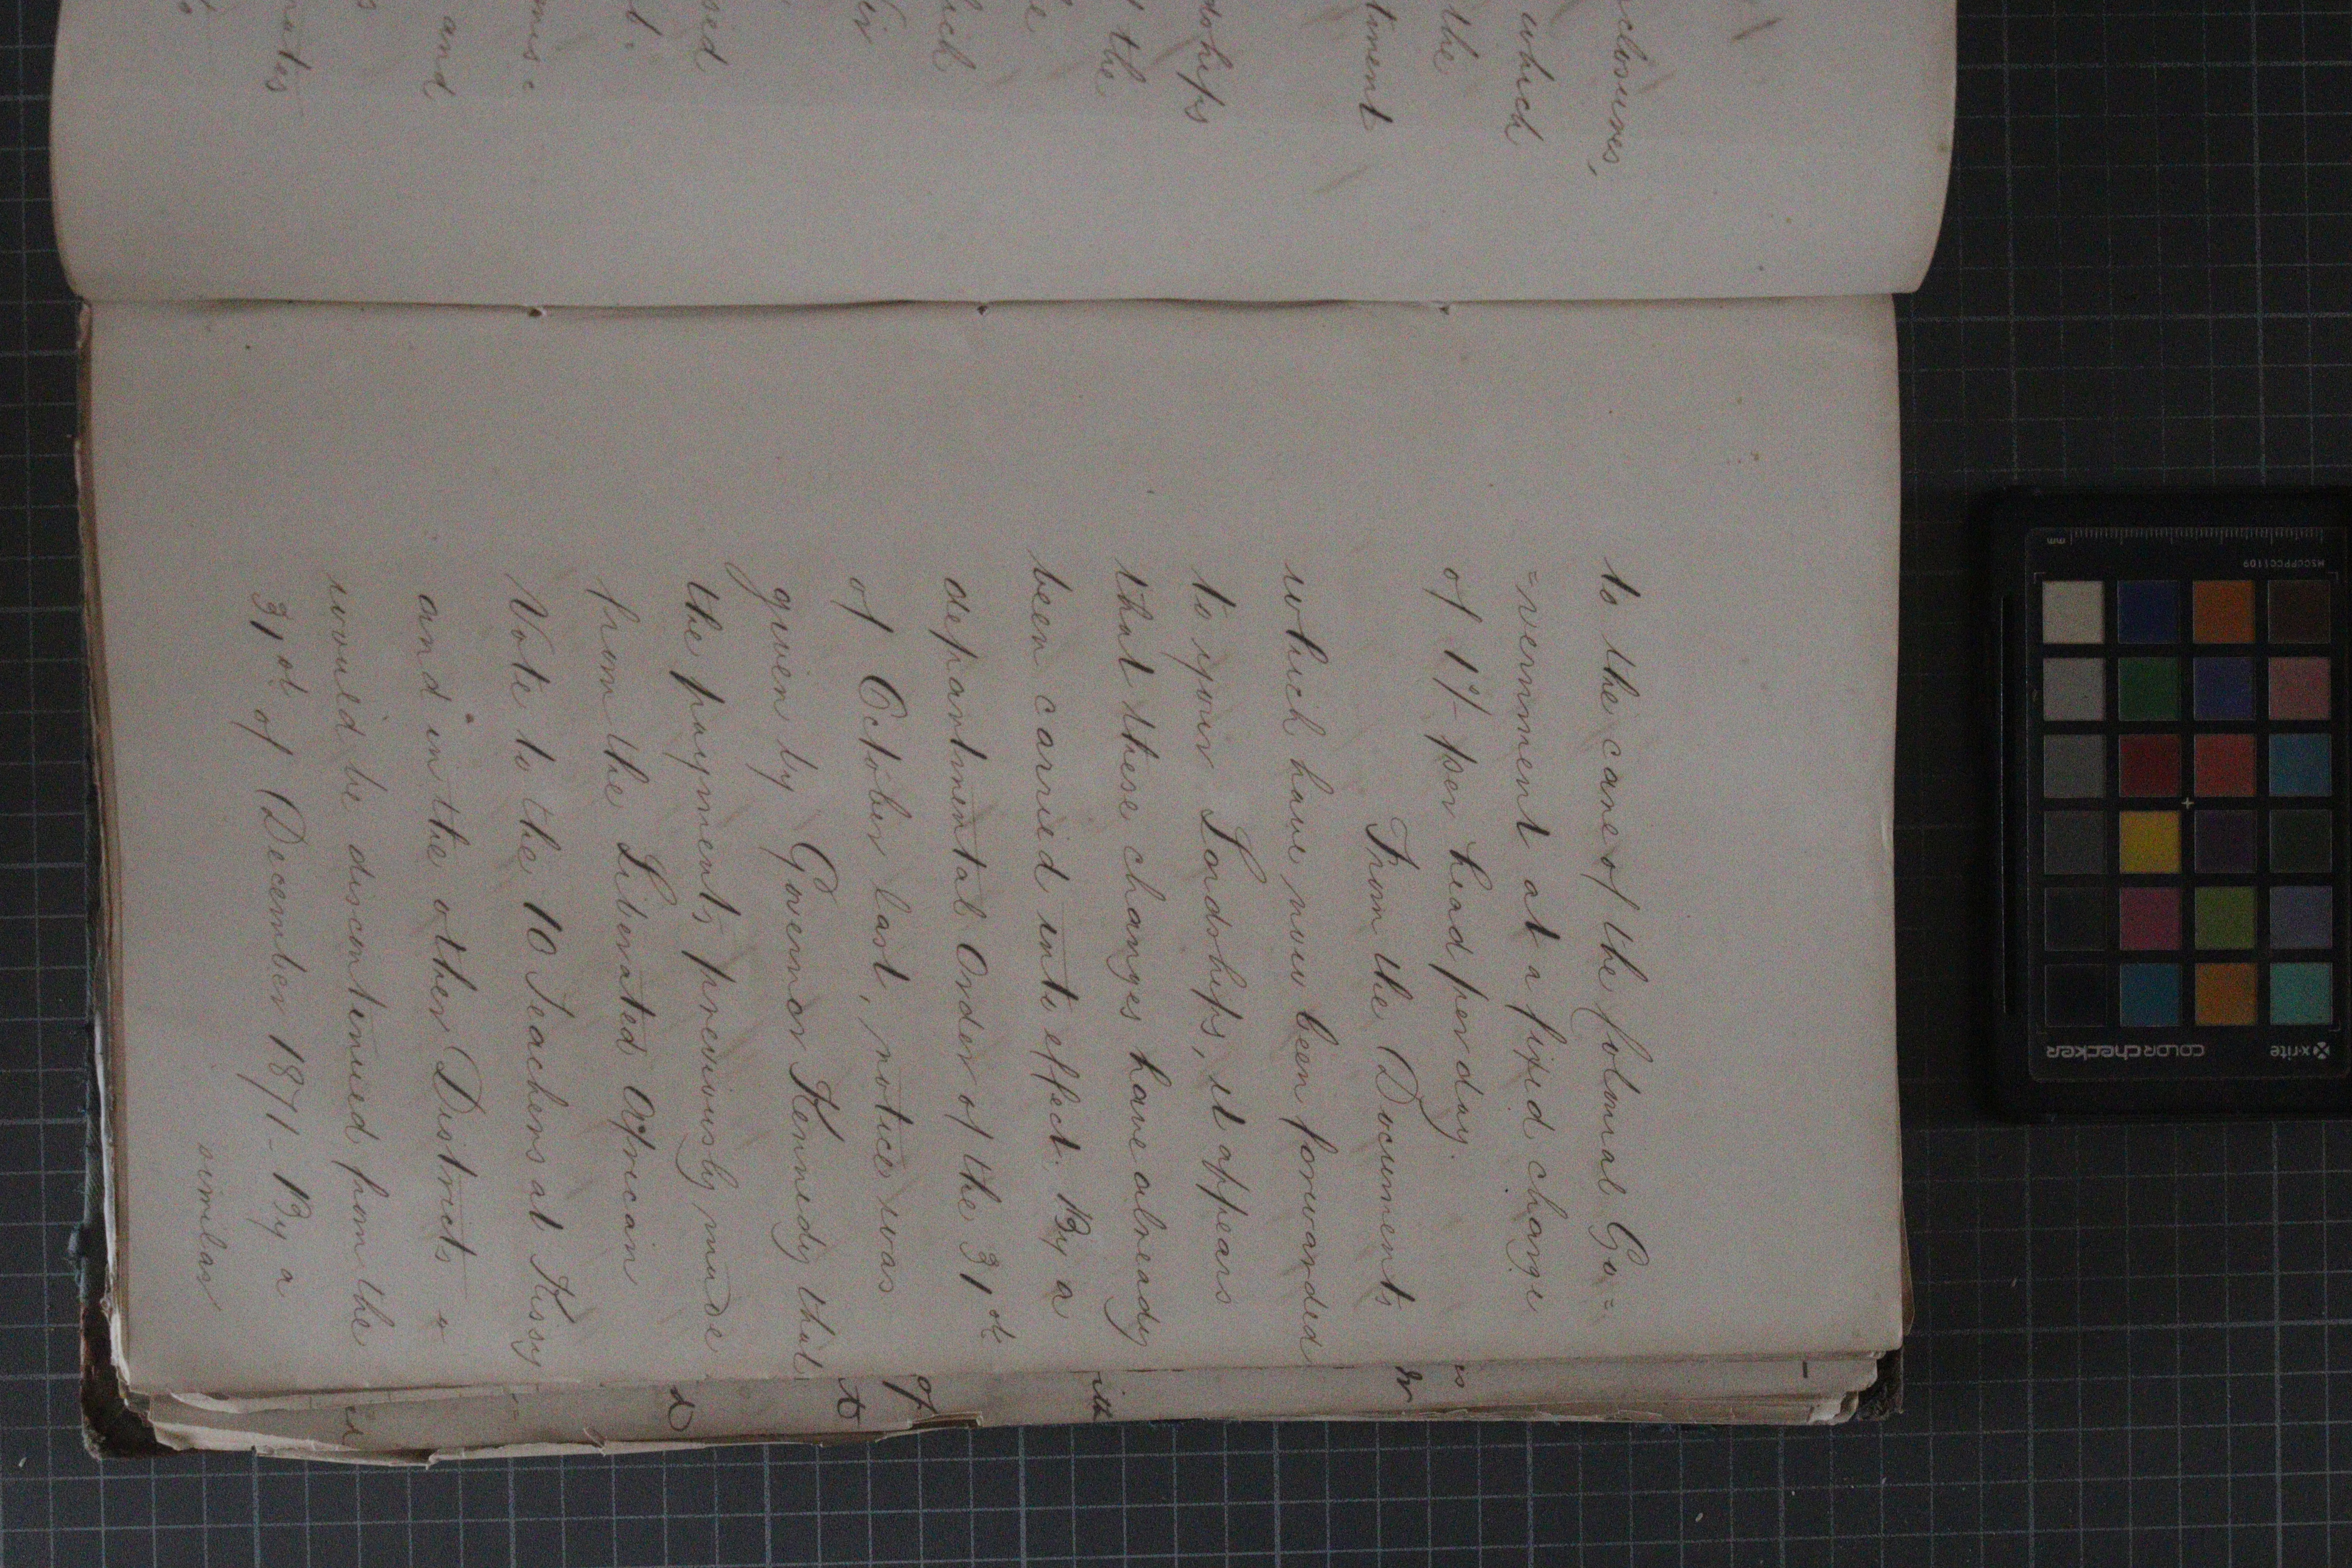 closures,
which
the
tment
dships
the
e
ich
eir
sed
t.
mise
and
s
nates
to
to the care of the Colonial Go=
=vernment at a fixed charge
of 1/- per head per day.
From the Documents
which have now been forwarded
to your Lordships, it appears
that these changes have already
been carried into effect. By a
departmental Order of the 31st
of October last, notice was
given by Governor Kennedy that
the payments previously made
from the Liberated African
Vote to the 10 Teachers at Kissy
and in the other Districts
would be discontinued from the
31st of December 1871 - By a
similar
of
to
ith
x-rite
colorchecker
MSCCPPCC1109
mm